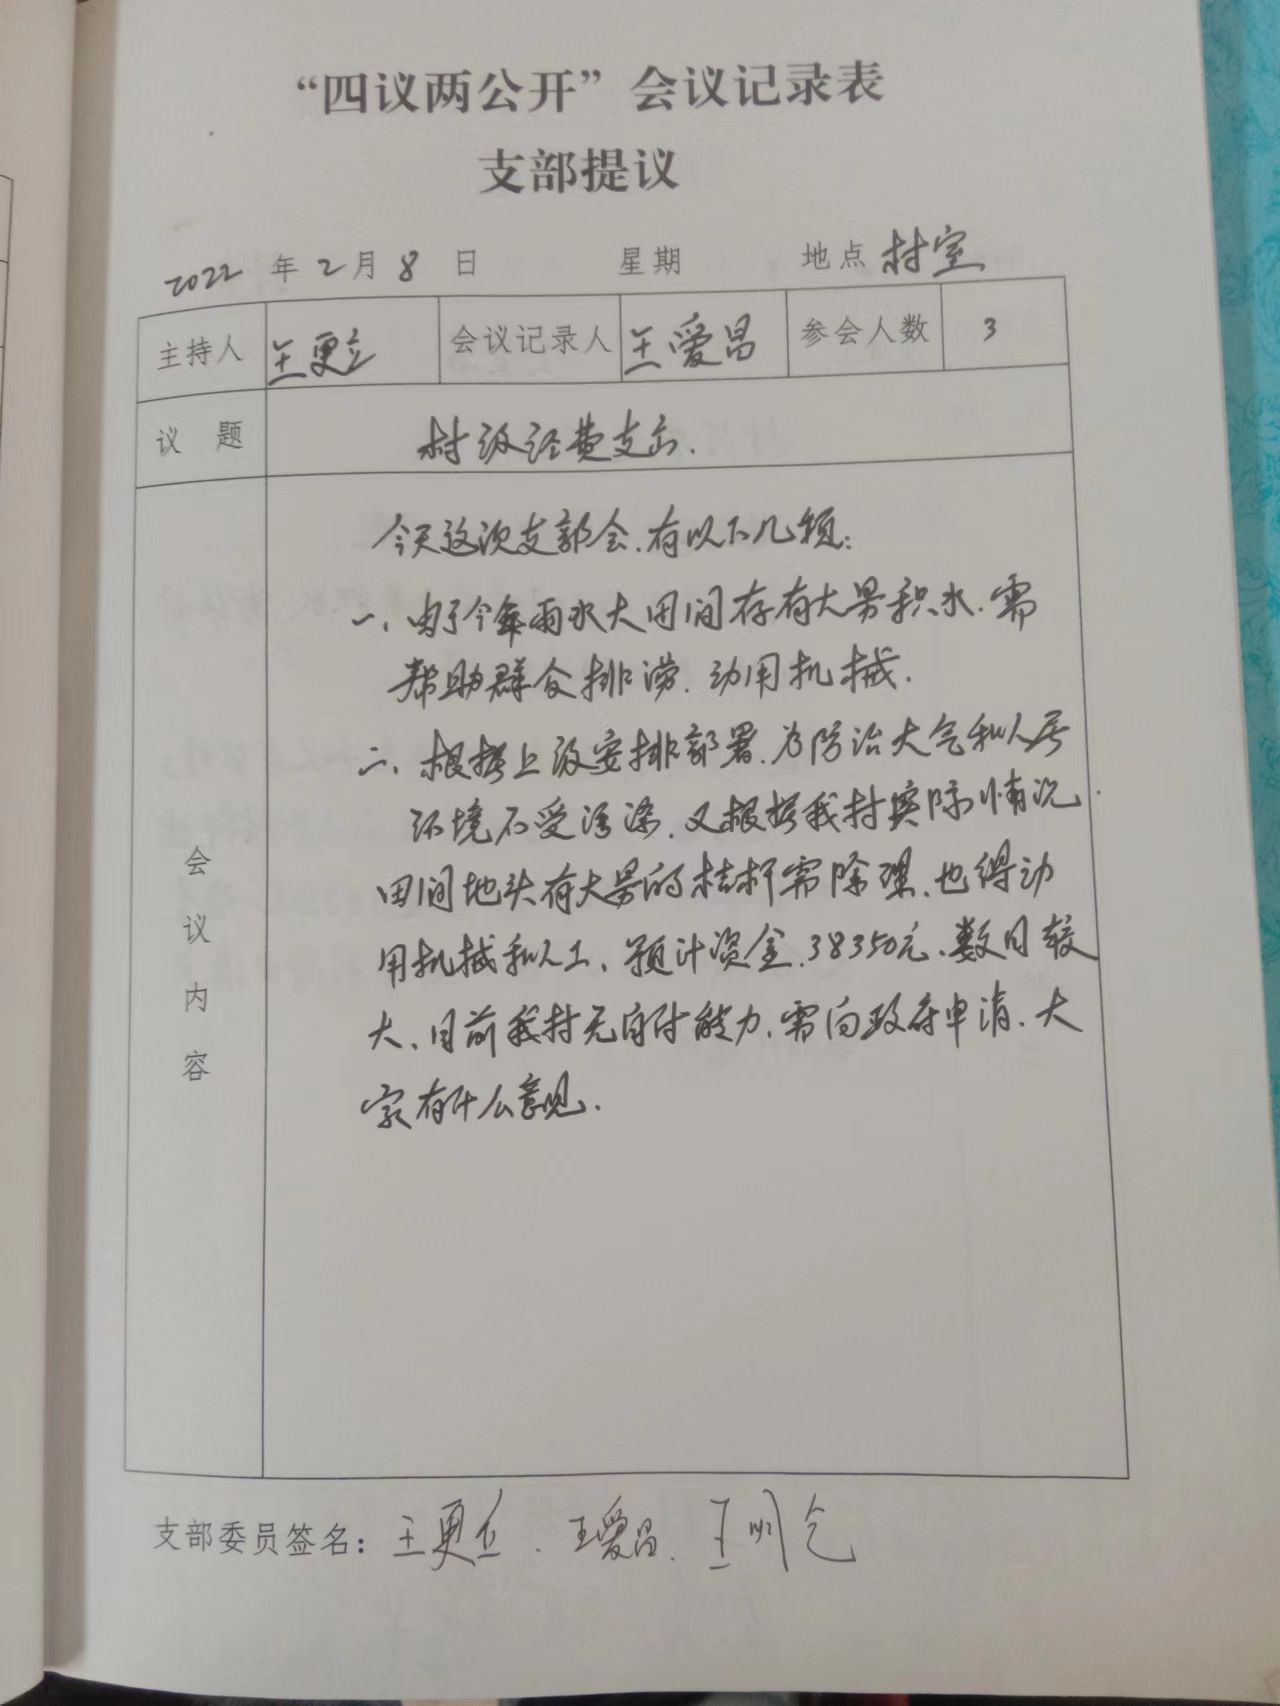 “四议两公开”会议记录表
支部提议
2022年2月8日 星期 地点 村室
主持人 王更立 会议记录人 王爱昌 参会人数 3
议题 村级经费支出.
会议内容
今天这次支部会.有以下几项:
一、由于今年雨水大田间存有大量积水.需
帮助群众排涝.动用机械.
二、根据上级安排部署.为防治大气和人居
环境不受污染.又根据我村实际情况.
田间地头有大量的桔杆需除理.也得动
用机械和人工、预计资金.38350元、数目较
大、目前我村无自付能力.需向政府申请.大
家有什么意见.
支部委员签名: 王更立.王爱昌.王